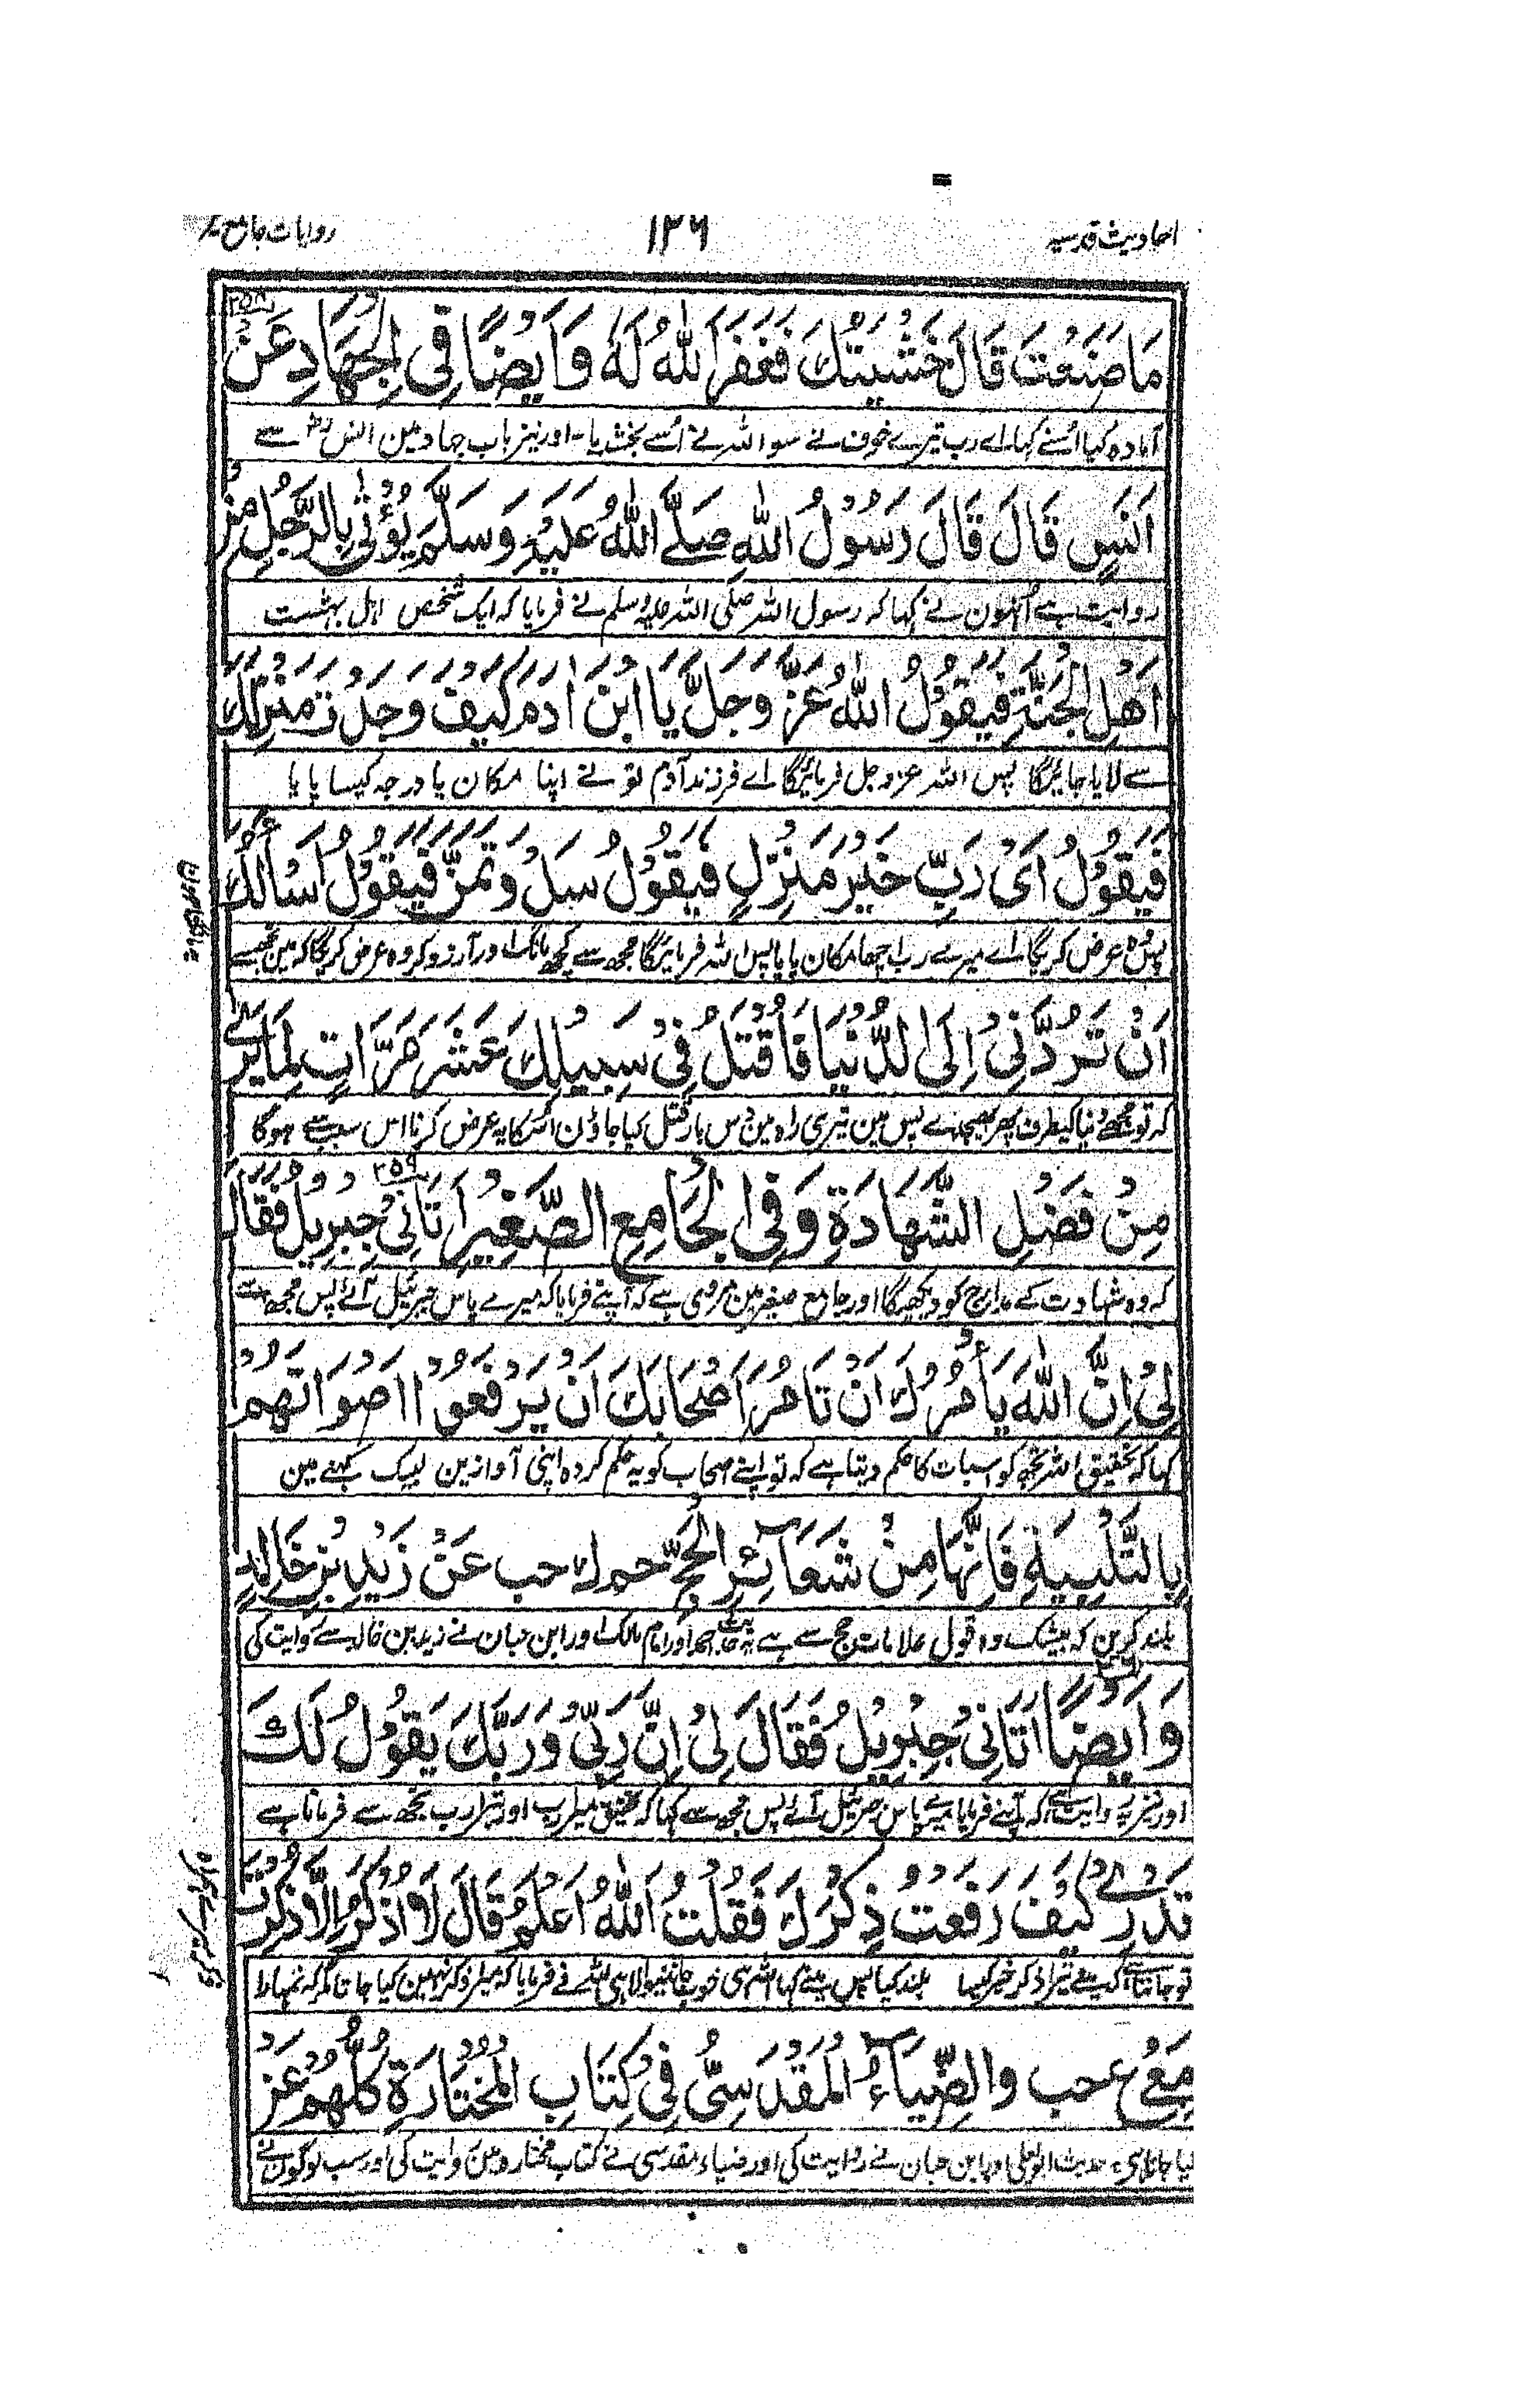 احادیث قدسیہ ۱۳۶ روایات جامع
مَا صَنَعْتَ قَالَ خَشْيَتُكَ فَغَفَرَ اللّٰهُ لَهٗ وَاَيْضًا فِى الْجِهَادِ عَنْ
۲۵۸
آمادہ کیا اُسنے کہا اے رب تیرے خوف نے سو اللہ نے اُسے بخش دیا۔ اور نیز باب جہاد مین انس رض سے
اَنَسٍ قَالَ قَالَ رَسُوْلُ اللّٰهِ صَلَّى اللّٰهُ عَلَيْهِ وَسَلَّمَ يُؤْتٰى بِالرَّجُلِ مِنْ
روایت ہے اُنہون نے کہا کہ رسول اللہ صلی اللہ علیہ وسلم نے فرمایا کہ ایک شخص اہل بہشت
اَهْلِ الْجَنَّةِ فَيَقُوْلُ اللّٰهُ عَزَّ وَجَلَّ يَا ابْنَ اٰدَمَ كَيْفَ وَجَدْتَ مَنْزِلَكَ
سے لایا جائیگا پس اللہ عزوجل فرمائیگا اے فرزند آدم تو نے اپنا مکان یا درجہ کیسا پایا
فَيَقُوْلُ اَىْ رَبِّ خَيْرَ مَنْزِلٍ فَيَقُوْلُ سَلْ وَتَمَنَّ فَيَقُوْلُ اَسْاَلُكَ
پس وہ عرض کریگا اے میرے رب اچھا مکان پایا پس اللہ فرمائیگا مجھ سے کچھ مانگ اور آرزو کر وہ عرض کریگا کہ مین تجھسے
اَنْ تَرُدَّنِىْ اِلَى الدُّنْيَا فَاُقْتَلُ فِىْ سَبِيْلِكَ عَشْرَ مَرَّاتٍ لِمَا يَرٰى
کہ تو مجھے دُنیا کیطرف پھر بھیجدے پس مین تیری راہ مین دس بار قتل کیا جاؤن اُسکا یہ عرض کرنا اس سبب سے ہوگا
مِنْ فَضْلِ الشَّهَادَةِ وَفِى الْجَامِعِ الصَّغِيْرِ اَتَانِىْ جِبْرِيْلُ فَقَالَ
۲۵۹
کہ وہ شہادت کے مدارج کو دیکھیگا اور جامع صغیر مین مروی ہے کہ آپنے فرمایا کہ میرے پاس جبرئیل آئے پس مجھ سے
لِىْ اِنَّ اللّٰهَ يَأْمُرُكَ اَنْ تَأمُرَ اَصْحَابَكَ اَنْ يَرْفَعُوْا اَصْوَاتَهُمْ
کہا کہ تحقیق اللہ تجھکو اسبات کا حکم دیتا ہے کہ تو اپنے اصحاب کو یہ حکم کر دہ اپنی آوازین لبیک کہنے مین
بِالتَّلْبِيَةِ فَاِنَّهَا مِنْ شَعَآئِرِ الْحَجِّ حم ك حب عَنْ زَيْدِ بْنِ خَالِدٍ
بلند کرین کہ بیشک وہ قول علامات حج سے ہے یہ حدیث احمد اور امام مالک اور ابن حبان نے زید بن خالد سے روایت کی
وَاَيْضًا اَتَانِىْ جِبْرِيْلُ فَقَالَ لِىْ اِنَّ رَبِّىْ وَرَبَّكَ يَقُوْلُ لَكَ
اور نیز یہ روایت ہے کہ آپنے فرمایا میرے پاس جبرئیل آئے پس مجھ سے کہا کہ تحقیق میرا رب اور تیرا رب تجھ سے فرماتا ہے
تَدْرِىْ كَيْفَ رَفَعْتُ ذِكْرَكَ فَقُلْتُ اَللّٰهُ اَعْلَمُ قَالَ لَا اُذْكَرُ اِلَّا ذُكِرْتَ
تو جانتا ہے کہ مینے تیرا ذکر خیر کیسا بلند کیا پس مینے کہا اللہ ہی خوب جاننیوالا ہے اللہ نے فرمایا کہ میرا ذکر نہین کیا جاتا مگر کہ تمہارا
مَعِىْ ع حب وَالضِّيَآءُ الْمَقْدَسِىُّ فِىْ كِتَابِ الْمُخْتَارَةِ كُلُّهُمْ عَنْ
کیا جاتا ہے۔ حدیث ابو یعلی اور ابن حبان نے روایت کی اور ضیاء مقدسی نے کتاب مختارہ مین روایت کی اور سب لوگون نے